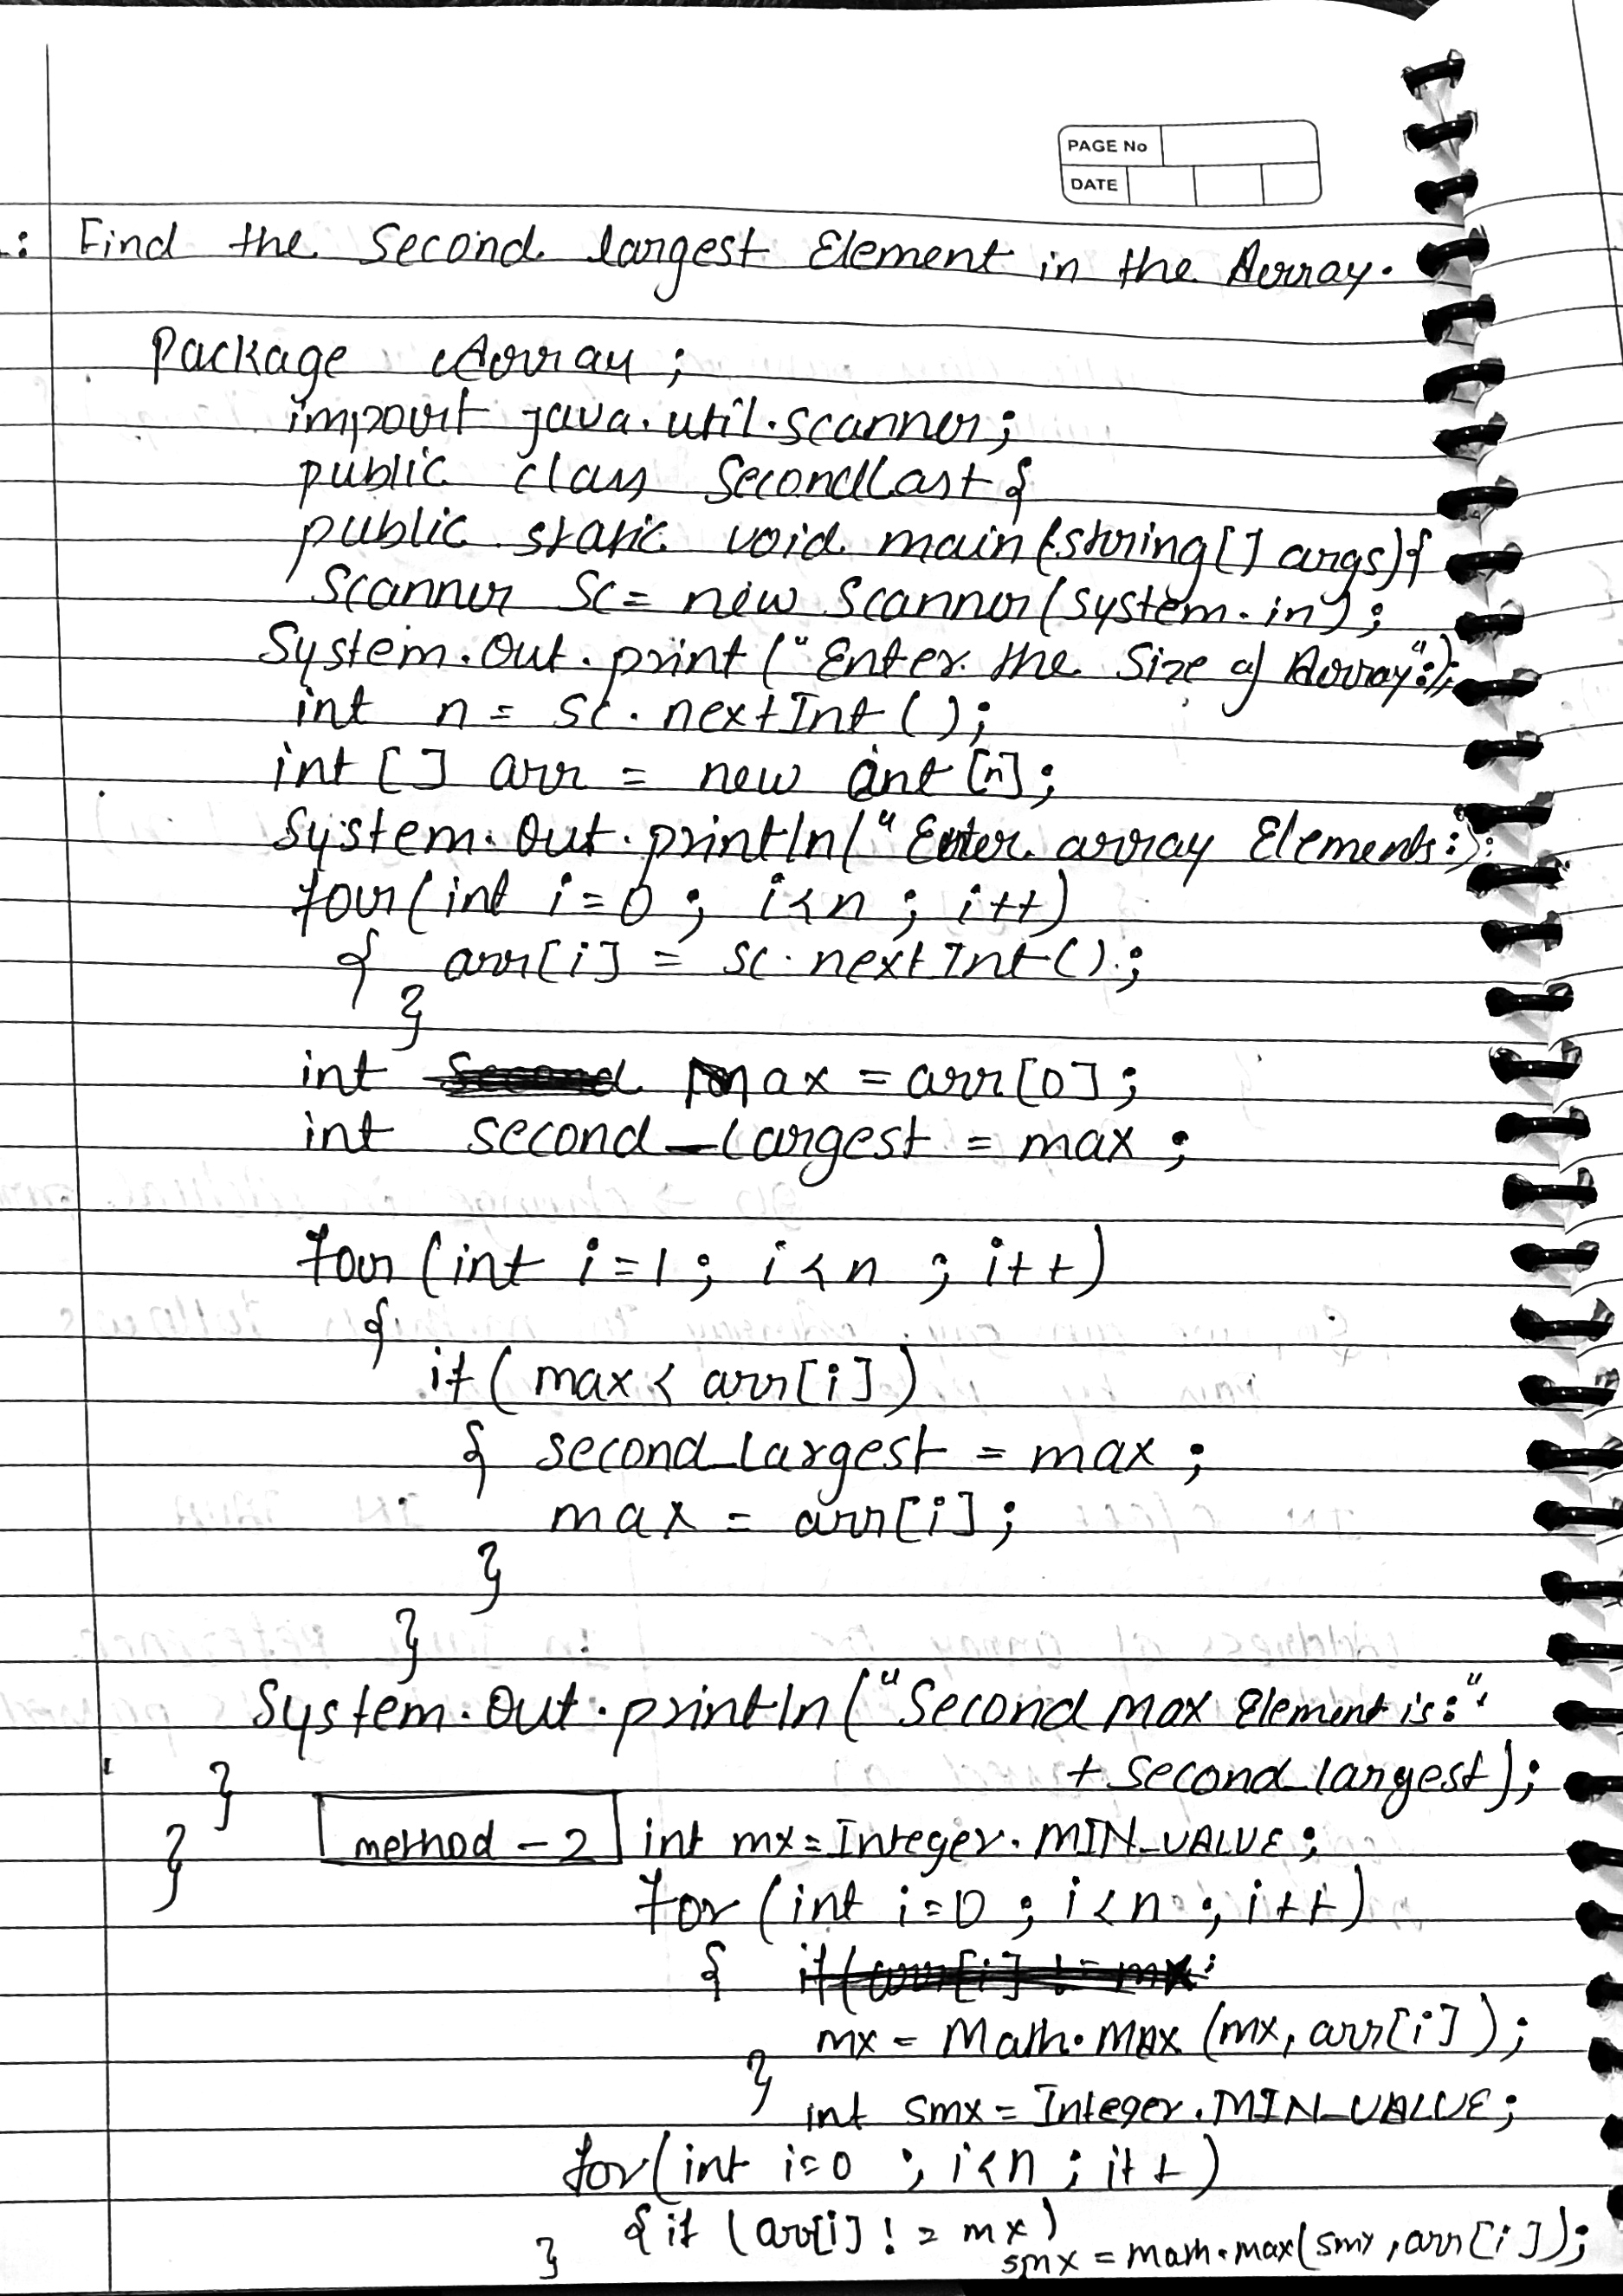 PAGE No
DATE
: Find the Second largest Element in the Array.
Package Array ;
import java.util.scanner;
public class SecondLast {
public static void main (string [] args) {
Scanner Sc = new Scanner (System.in) ;
System.Out.print ("Enter the Size of Array:");
int n = sc.nextInt ( );
int [ ] arr = new int [n] ;
System.Out.println ("Enter array Elements:);
for (int i = 0 ; i < n ; i++)
{ arr [i] = sc.nextInt () ;
}
int max = arr [0] ;
int second_largest = max ;
for (int i = 1 ; i < n ; i++)
{
if ( max < arr [i] )
{ second_largest = max ;
max = arr [i] ;
}
}
System.Out.println ("Second max Element is:"
+ second_largest ) ;
}
} method - 2 int mx = Integer.MIN_VALUE ;
for (int i = 0 ; i < n ; i++)
{ if ( arr [i] != mx
mx = Math.max (mx, arr [i] ) ;
}
int smx = Integer.MIN_VALUE ;
for (int i = 0 ; i < n ; i++)
{ if (arr[i] != mx)
} smx = math.max(smx, arr [i] ) ;